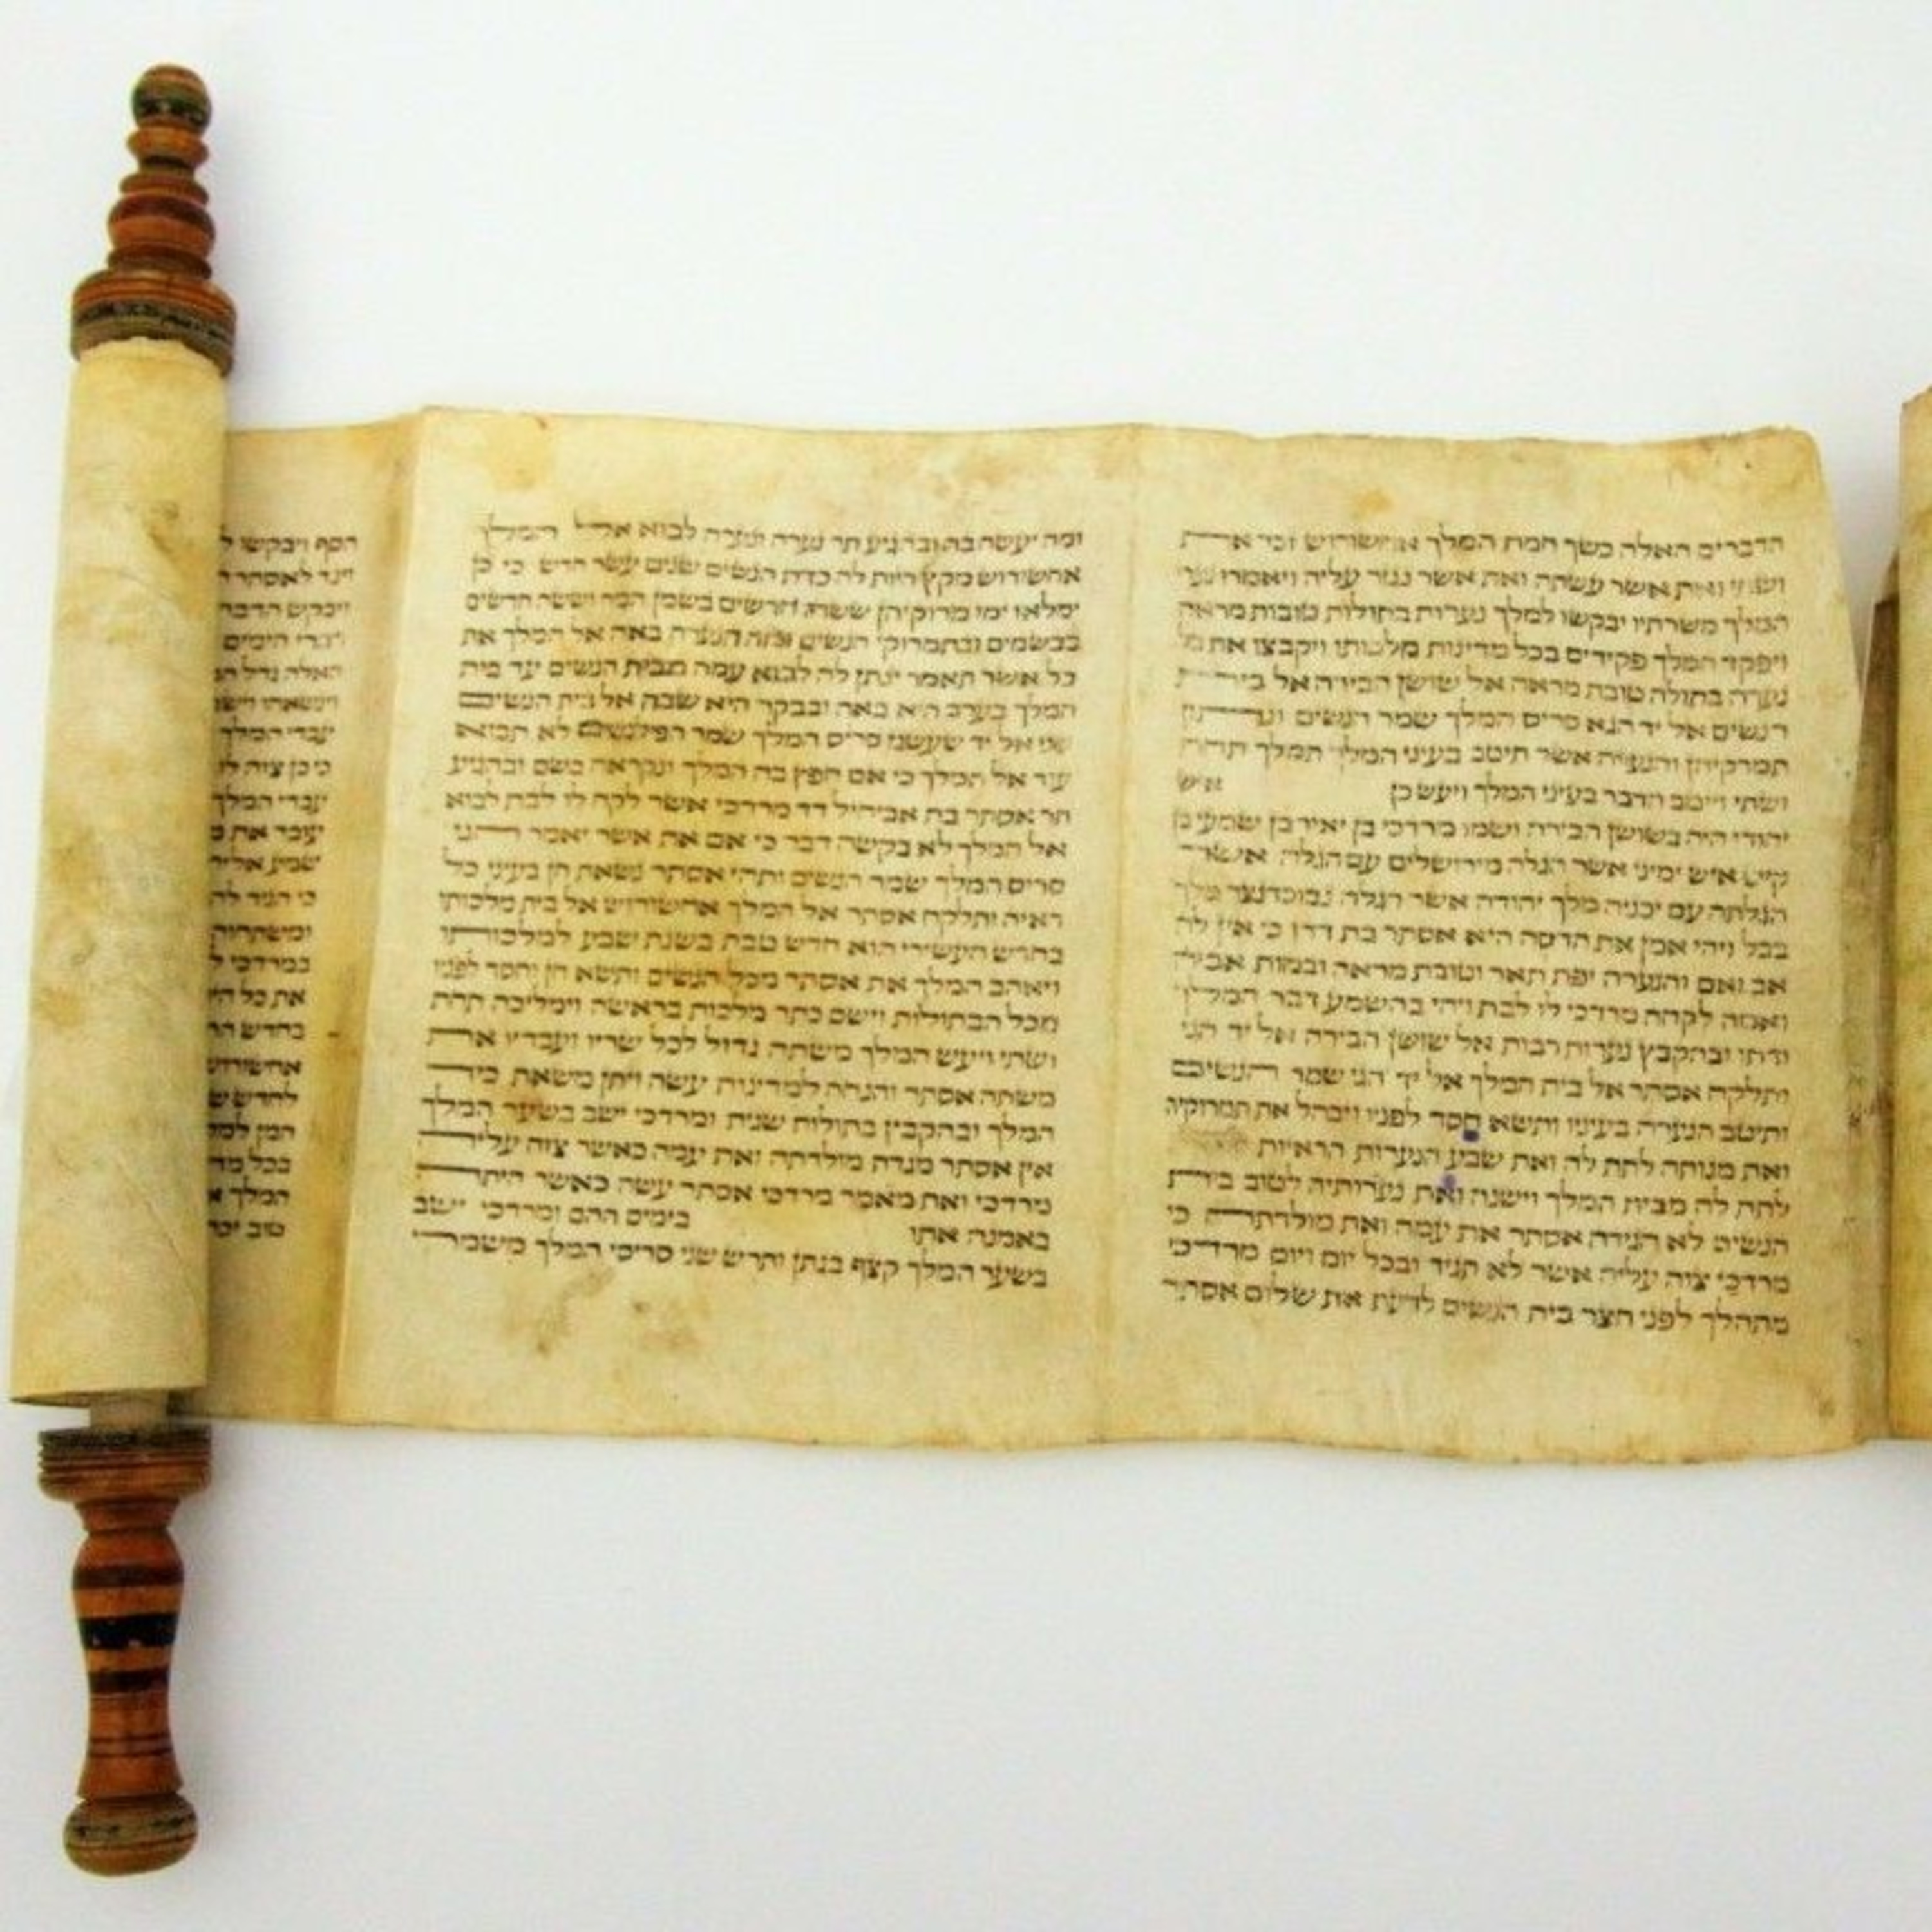 הדברים האלה כשך חמת המלך אחשורוש זכר את
ושתי ואת אשר עשתה ואת אשר נגזר עליה ויאמרו נערי
המלך משרתיו יבקשו למלך נערות בתולות טובות מראה
ויפקד המלך פקידים בכל מדינות מלכותו ויקבצו את
נערה בתולה טובת מראה אל שושן הבירה אל בית
הנשים אל יד הגא סריס המלך שמר הנשים ונתון
תמרקיהן והנערה אשר תיטב בעיני המלך תמלך תחת
ושתי וייטב הדבר בעיני המלך ויעש כן איש
יהודי היה בשושן הבירה ושמו מרדכי בן יאיר בן שמעי בן
קיש איש ימיני אשר הגלה מירושלים עם הגלה אשר
הגלתה עם יכניה מלך יהודה אשר הגלה נבוכדנצר מלך
בבל ויהי אמן את הדסה היא אסתר בת דדו כי אין לה
אב ואם והנערה יפת תאר וטובת מראה ובמות אביה
ואמה לקחה מרדכי לו לבת ויהי בהשמע דבר המלך
ודתו ובהקבץ נערות רבות אל שושן הבירה אל יד הגי
ותלקח אסתר אל בית המלך אל יד הגי שמר הנשים
ותיטב הנערה בעיניו ותשא חסד לפניו ויבהל את תמרוקיה
ואת מנותה לתת לה ואת שבע הנערות הראיות
לתת לה מבית המלך וישנה ואת נערותיה לטוב בית
הנשים לא הגידה אסתר את עמה ואת מולדתה כי
מרדכי צוה עליה אשר לא תגיד ובכל יום ויום מרדכי
מתהלך לפני חצר בית הנשים לדעת את שלום אסתר
ומה יעשה בה ובהגיע תר נערה ונערה לבוא אל המלך
אחשורוש מקץ היות לה כדת הנשים שנים עשר חדש כי כן
ימלאו ימי מרוקיהן ששה חדשים בשמן המר וששה חדשים
בבשמים ובתמרוקי הנשים ובזה הנערה באה אל המלך את
כל אשר תאמר ינתן לה לבוא עמה מבית הנשים עד בית
המלך בערב היא באה ובבקר היא שבה אל בית הנשים
שני אל יד שעשגז סריס המלך שמר הפילגשים לא תבוא
עוד אל המלך כי אם חפץ בה המלך ונקראה בשם ובהגיע
תר אסתר בת אביחיל דד מרדכי אשר לקח לו לבת לבוא
אל המלך לא בקשה דבר כי אם את אשר יאמר הגי
סריס המלך שמר הנשים ותהי אסתר נשאת חן בעיני כל
ראיה ותלקח אסתר אל המלך אחשורוש אל בית מלכותו
בחדש העשירי הוא חדש טבת בשנת שבע למלכותו
ויאהב המלך את אסתר מכל הנשים ותשא חן וחסד לפניו
מכל הבתולות וישם כתר מלכות בראשה וימליכה תחת
ושתי ויעש המלך משתה גדול לכל שריו ועבדיו את
משתה אסתר והנחה למדינות עשה ויתן משאת כיד
המלך ובהקבץ בתולות שנית ומרדכי ישב בשער המלך
אין אסתר מגדת מולדתה ואת עמה כאשר צוה עליה
מרדכי ואת מאמר מרדכי אסתר עשה כאשר היתה
באמנה אתו בימים ההם ומרדכי ישב
בשער המלך קצף בגתן ותרש שני סריסי המלך משמרי
הסף ויבקשו
ויגד לאסתר
ויבקש הדבר
דברי הימים
האלה גדל
וינשאהו וישם
עבדי המלך
כי כן צוה לו
עבדי המלך
יעובר את
שמע אליהם
כי הגיד להם
ומשתחוה
במרדכי
את כל
בחדש
אחשורוש
לחדש
המן למלך
בכל
המלך
טוב